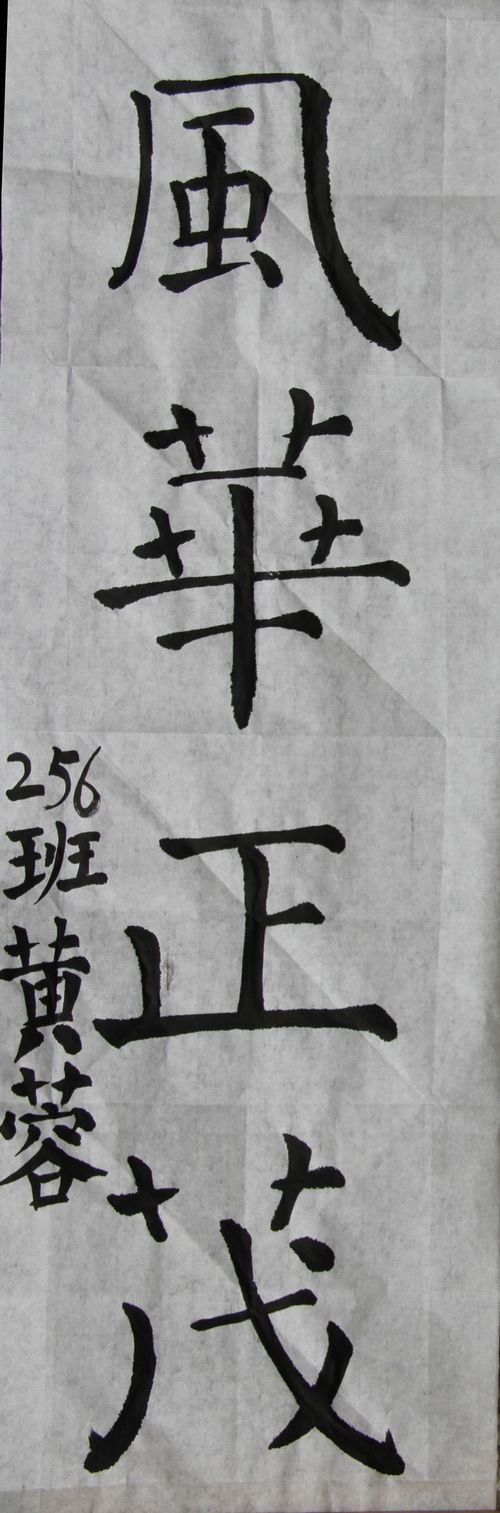 風華正茂
256班黄蓉